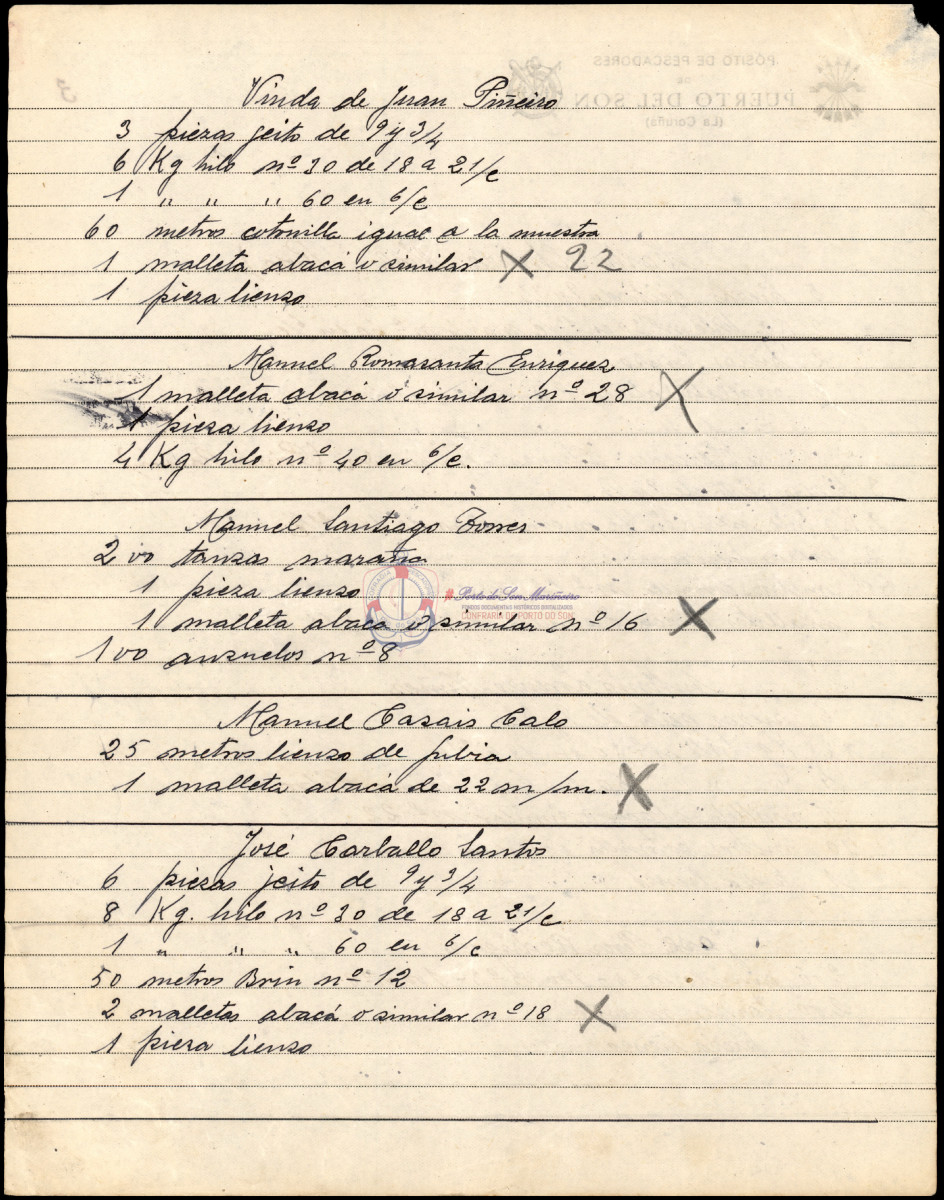 Viuda de Juan Piñeiro
3 piezas jeito de 9 y 3/4
6 Kg hilo nº 30 de 18 a 21/c
1 " " " 60 en 6/c
60 metros cotonilla igual a la muestra
1 malleta abacá o similar X 22
1 pieza lienzo
Manuel Romasanta Enriquez
1 malleta abacá o similar nº 28 X
1 pieza lienzo
4 Kg hilo nº 40 en 6/c.
Manuel Santiago Torres
200 tanzas maraña
1 pieza lienzo
1 malleta abacá o similar nº 16 X
100 anzuelos nº 8
Manuel Casais Calo
25 metros lienzo de Jubia
1 malleta abacá de 22 m/m. X
José Carballo Santos
6 piezas jeito de 9 y 3/4
8 Kg. hilo nº 30 de 18 a 21/c
1 " " " 60 en 6/c
50 metros Brin nº 12
2 malletas abacá o similar nº 18 X
1 pieza lienzo
PÓSITO DE PESCADORES
DE
PUERTO DEL SON
(La Coruña)
3
#Porto do Son Mariñeiro
FONDOS DOCUMENTAIS HISTÓRICOS DIGITALIZADOS
CONFRARÍA DE PORTO DO SON